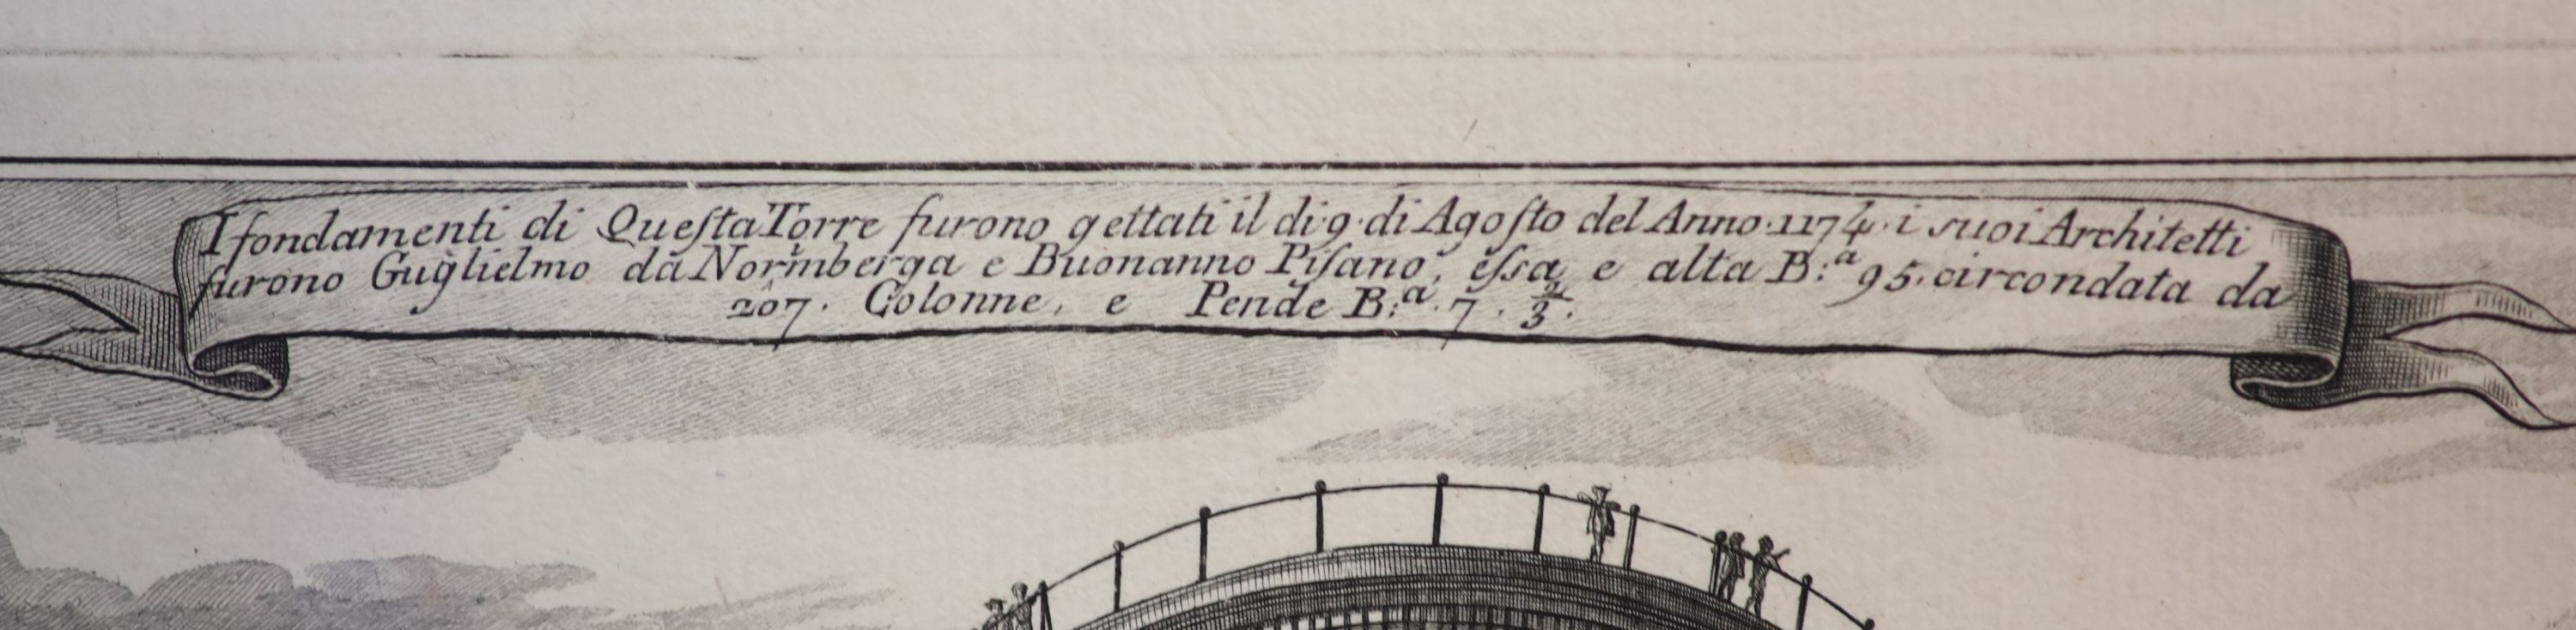 I fondamenti di Queſta Torre furono gettati il di 9. di Agoſto del Anno. 1174. i suoi Architetti
furono Guglielmo da Normberga e Buonanno Piſano, eſsa e alta B:ª 95. circondata da
207. Colonne, e Pende B:ª 7. 2/3.